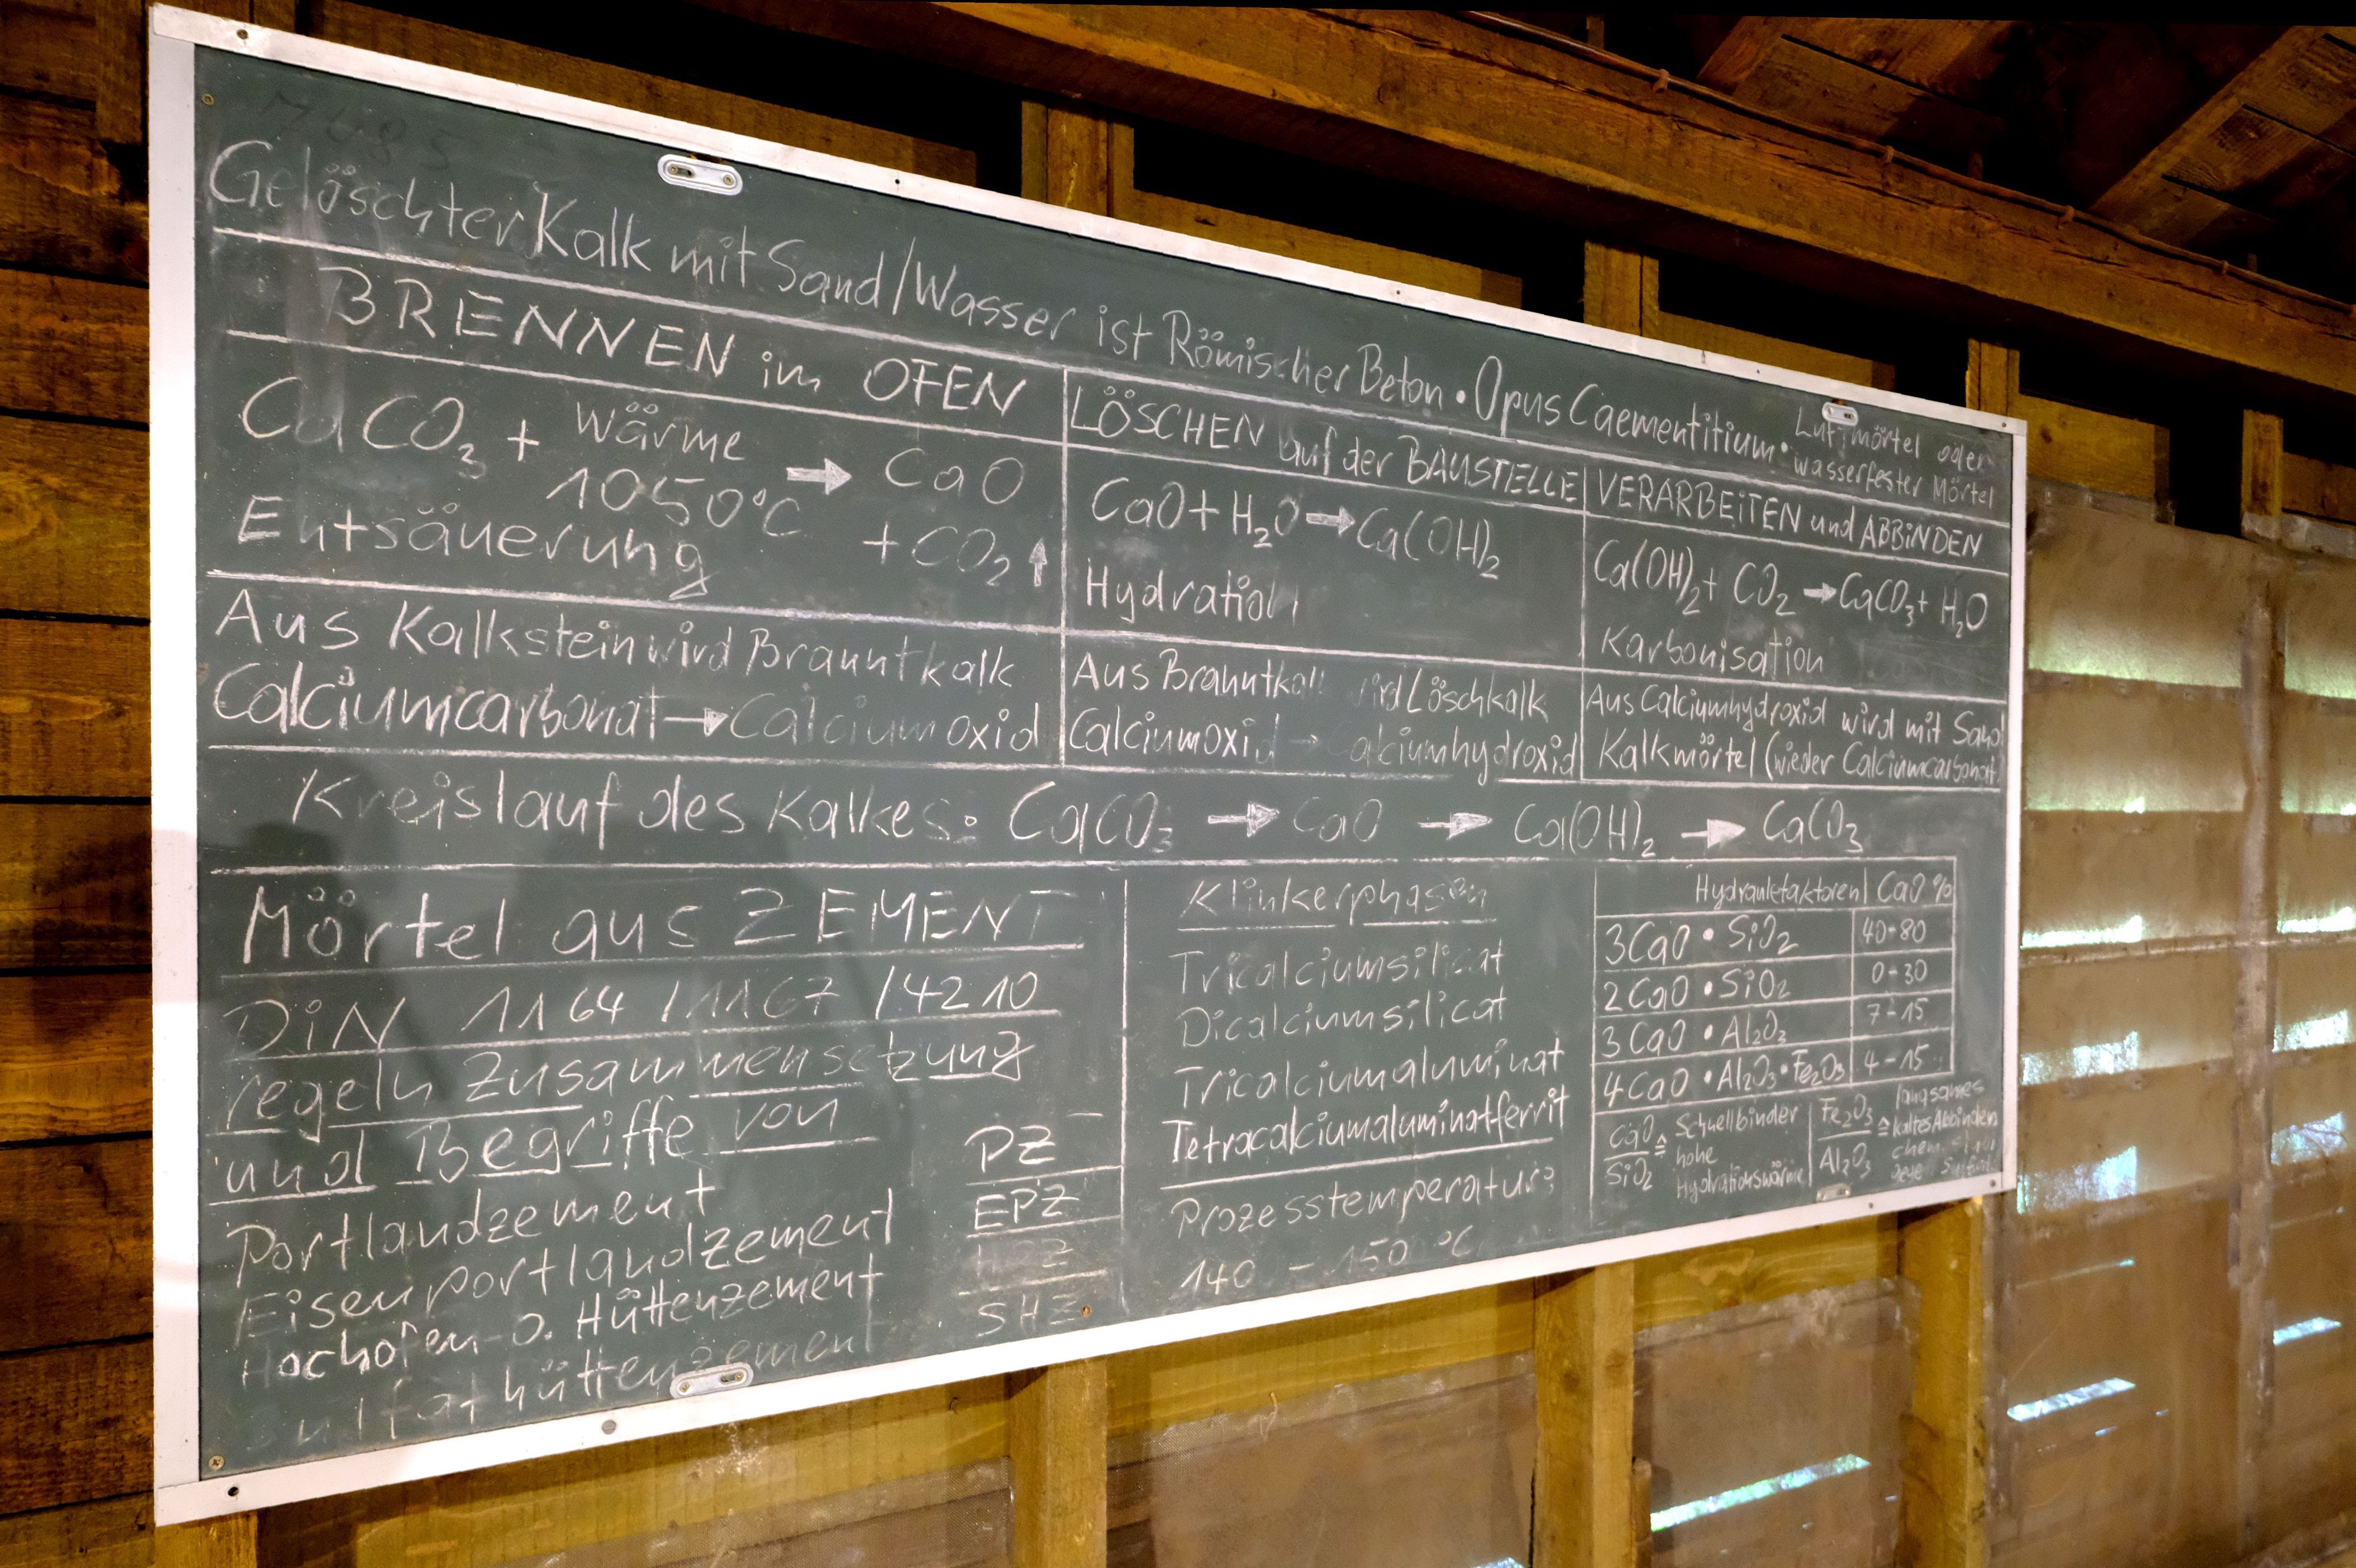 Gelöschter Kalk mit Sand/Wasser ist Römischer Beton • Opus Caementitium •
Luftmörtel oder
wasserfester Mörtel
BRENNEN im OFEN
CaCO₃ + Wärme → CaO
1050°C + CO₂ ↑
Entsäuerung
Aus Kalkstein wird Branntkalk
Calciumcarbonat → Calciumoxid
LÖSCHEN auf der BAUSTELLE
CaO + H₂O → Ca(OH)₂
Hydration
Aus Branntkalk wird Löschkalk
Calciumoxid → Calciumhydroxid
VERARBEITEN und ABBINDEN
Ca(OH)₂ + CO₂ → CaCO₃ + H₂O
Karbonisation
Aus Calciumhydroxid wird mit Sand
Kalkmörtel (wieder Calciumcarbonat)
Kreislauf des Kalkes: CaCO₃ → CaO → Ca(OH)₂ → CaCO₃
Mörtel aus ZEMENT
DiN 1164 / 1167 / 4210
regeln Zusammensetzung
und Begriffe von
Portlandzement PZ
Eisenportlandzement EPZ
Hochofen- o. Hüttenzement
Sulfathüttenzement SHZ
Klinkerphasen
Tricalciumsilicat
Dicalciumsilicat
Tricalciumaluminat
Tetracalciumaluminatferrit
Prozesstemperatur:
140 - 150 °C
Hydraulefaktoren CaO %
3CaO • SiO₂ 40-80
2CaO • SiO₂ 0-30
3CaO • Al₂O₃ 7-15
4CaO • Al₂O₃ • Fe₂O₃ 4-15
CaO/SiO₂ ≙ Schnellbinder
hohe
Hydrationswärme
Fe₂O₃/Al₂O₃ ≙ langsames
kaltes Abbinden